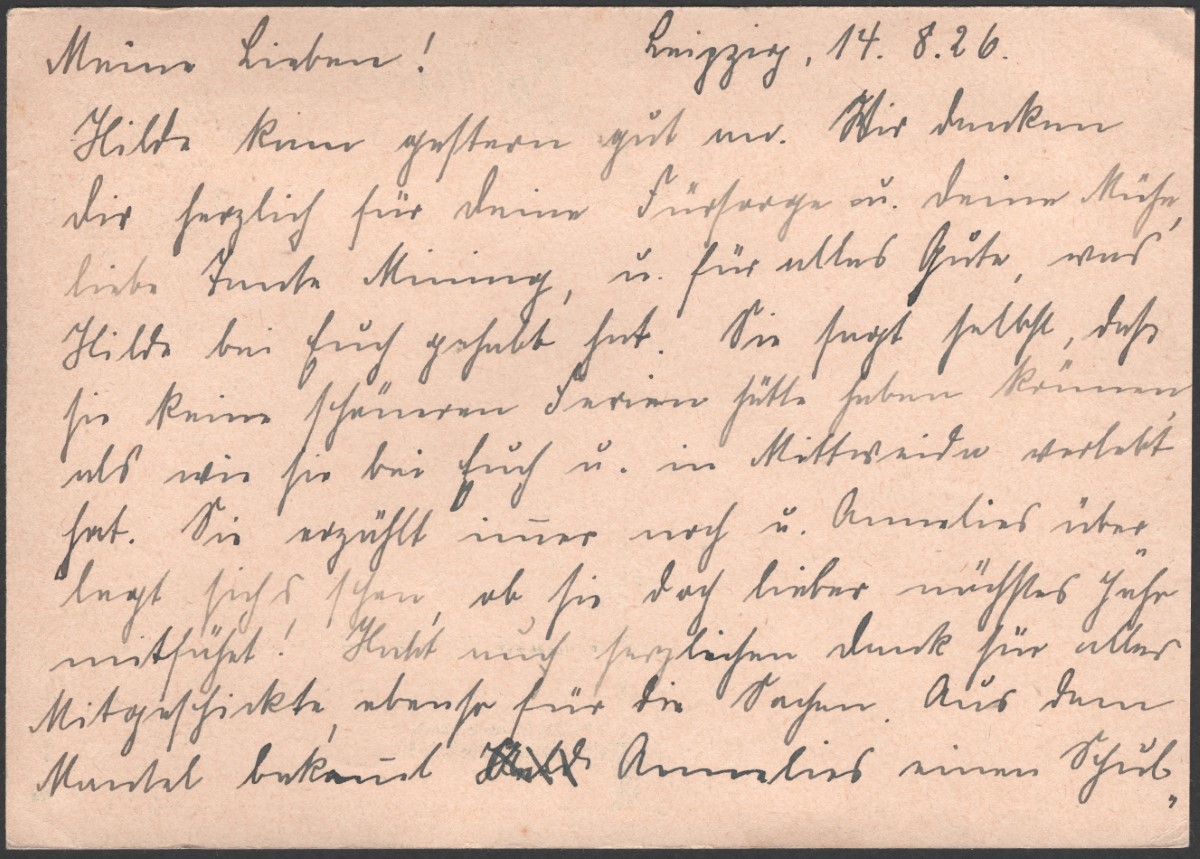 Meine Lieben! Leipzig, 14. 8. 26.
Hilde kam gestern gut an. Wir danken
dir herzlich für deine Fürsorge u. deine Mühe,
liebe Tante Mining, u. für alles Gute, was
Hilde bei Euch gehabt hat. Sie sagt selbst, daß
sie keine schöneren Ferien hätte haben können,
als wie sie bei Euch u. in Mittweida verlebt
hat. Sie erzählt im̅er noch u. Annelies über„
legt sich's schon, ob sie doch lieber nächstes Jahr
mitfährt! Habt auch herzlichen Dank für alles
Mitgeschickte, ebenso für die Sachen. Aus dem
Mantel bekom̅t Annelies einen Schul„